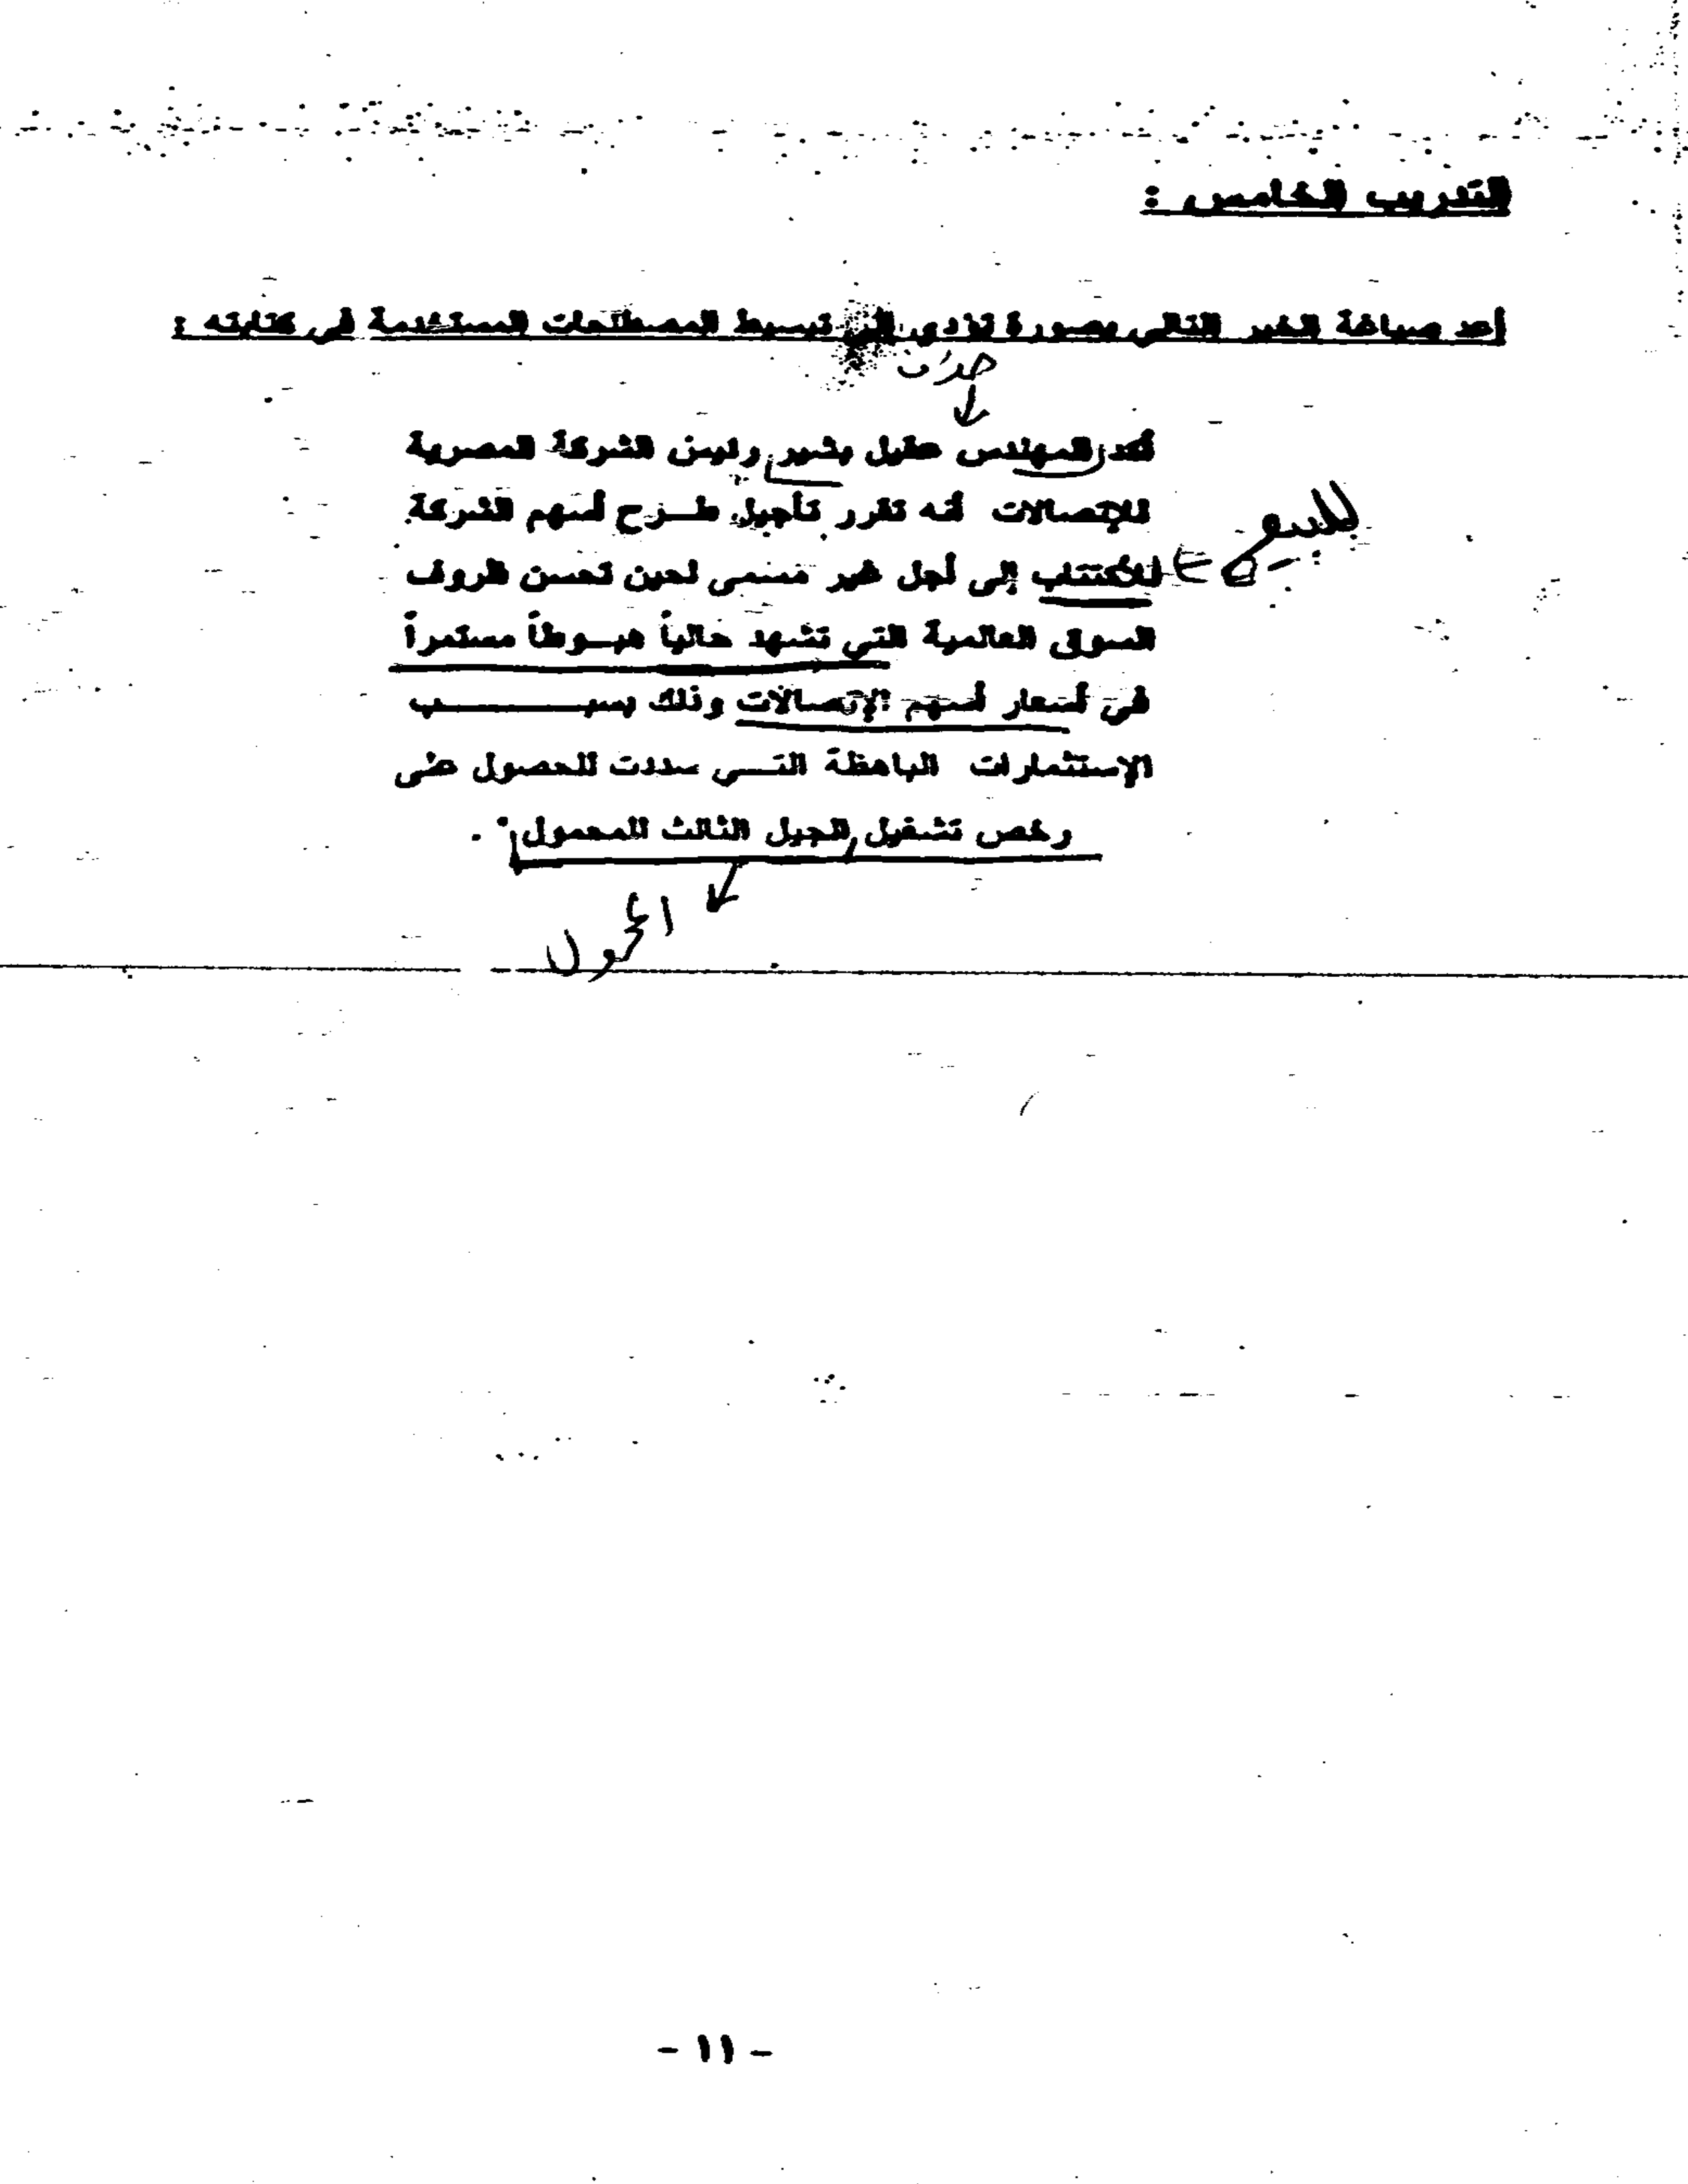 التدريب الخامس :
أعد صياغة الخبر التالي بصورة تؤدي إلى تبسيط المصطلحات المستخدمة في كتابته :
أكد المهندس عقيل بشير رئيس الشركة المصرية
للإتصالات أنه تقرر تأجيل طـرح أسهم الشركة
للبيع
للأكتتاب إلى أجل غير مسمى لحين تحسن ظروف
السوق العالمية التي تشهد حالياً هبـوطاً مستمراً
في أسعار أسهم الإتصالات وذلك بسبـــــب
الإستثمارات الباهظة التـي سددت للحصول على
رخص تشغيل الجيل الثالث للمحمول" .
المحمول
- ١١ -